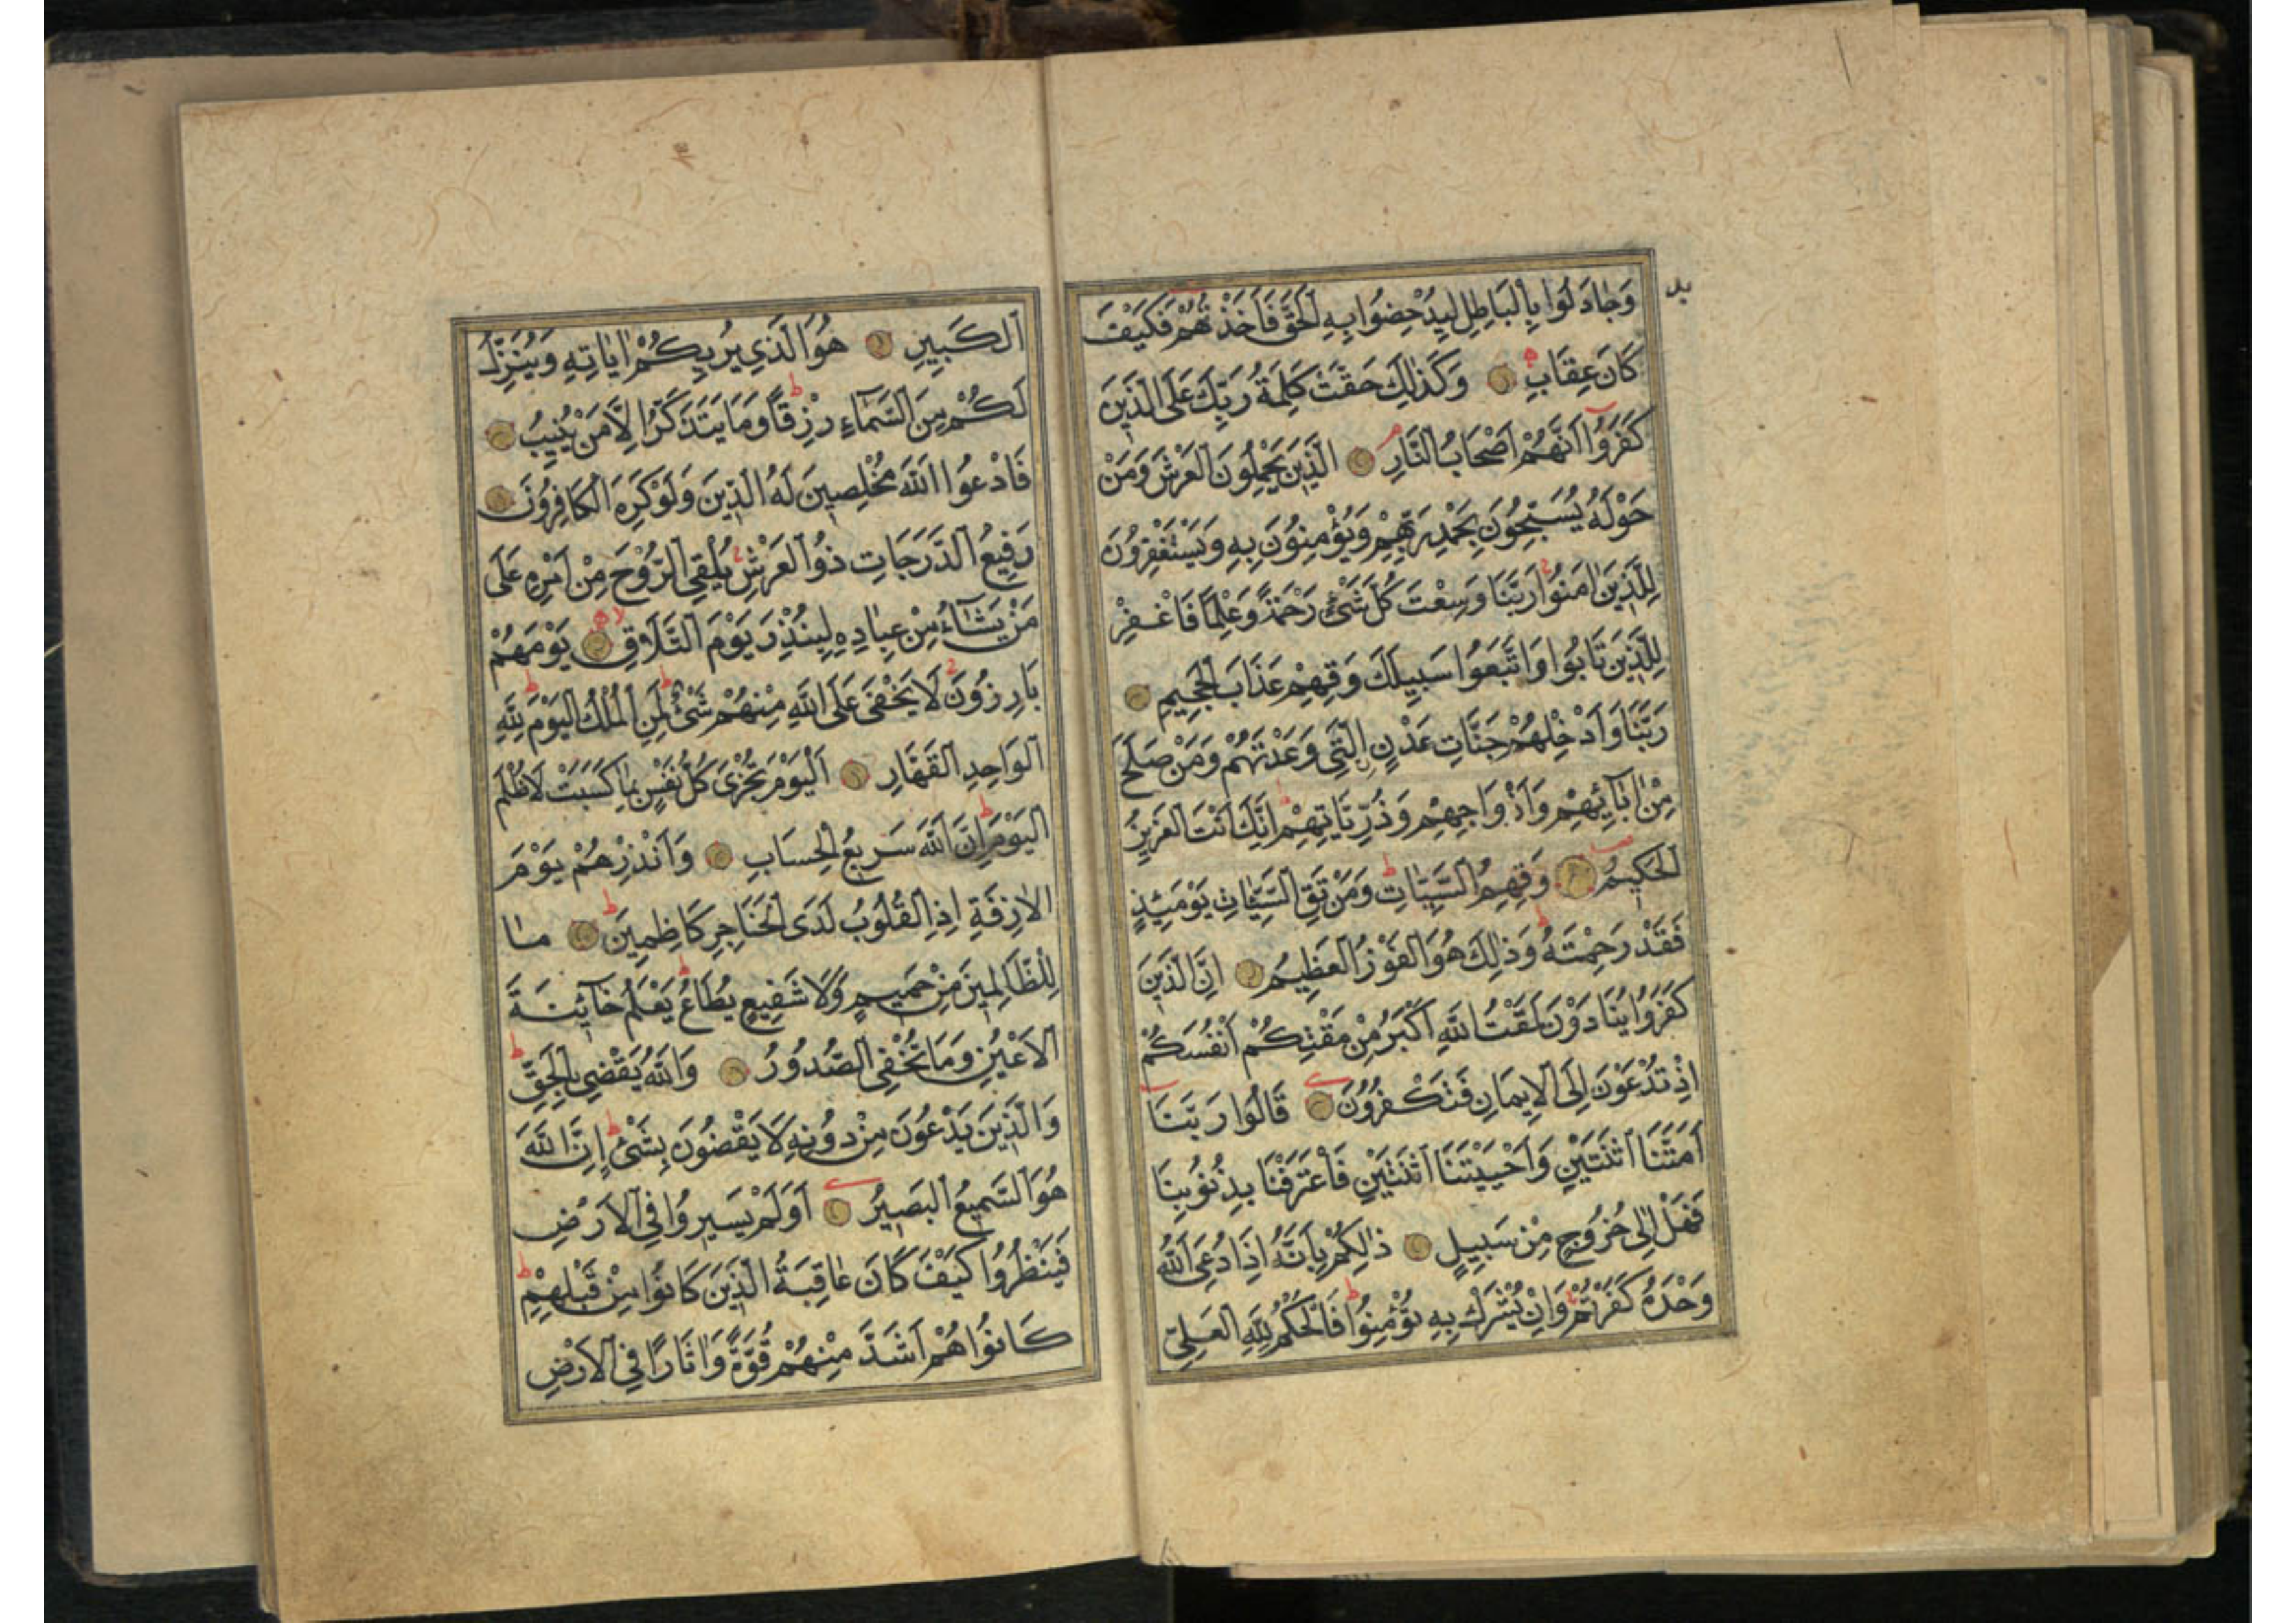 وَجَادَلُوا بِالْبَاطِلِ لِيُدْحِضُوا بِهِ الْحَقَّ فَاَخَذْتُهُمْ فَكَيْفَ
كَانَ عِقَابِ وَكَذٰلِكَ حَقَّتْ كَلِمَةُ رَبِّكَ عَلَى الَّذِينَ
كَفَرُوا اَنَّهُمْ اَصْحَابُ النَّارِ الَّذِينَ يَحْمِلُونَ الْعَرْشَ وَمَنْ
حَوْلَهُ يُسَبِّحُونَ بِحَمْدِ رَبِّهِمْ وَيُؤْمِنُونَ بِهِ وَيَسْتَغْفِرُونَ
لِلَّذِينَ اٰمَنُوا رَبَّنَا وَسِعْتَ كُلَّ شَيْءٍ رَحْمَةً وَعِلْمًا فَاغْفِرْ
لِلَّذِينَ تَابُوا وَاتَّبَعُوا سَبِيلَكَ وَقِهِمْ عَذَابَ الْجَحِيمِ
رَبَّنَا وَاَدْخِلْهُمْ جَنَّاتِ عَدْنٍ الَّتِي وَعَدْتَهُمْ وَمَنْ صَلَحَ
مِنْ اٰبَائِهِمْ وَاَزْوَاجِهِمْ وَذُرِّيَّاتِهِمْ اِنَّكَ اَنْتَ الْعَزِيزُ
الْحَكِيمُ وَقِهِمُ السَّيِّئَاتِ وَمَنْ تَقِ السَّيِّئَاتِ يَوْمَئِذٍ
فَقَدْ رَحِمْتَهُ وَذٰلِكَ هُوَ الْفَوْزُ الْعَظِيمُ اِنَّ الَّذِينَ
كَفَرُوا يُنَادَوْنَ لَمَقْتُ اللّٰهِ اَكْبَرُ مِنْ مَقْتِكُمْ اَنْفُسَكُمْ
اِذْ تُدْعَوْنَ اِلَى الْاِيمَانِ فَتَكْفُرُونَ قَالُوا رَبَّنَا
اَمَتَّنَا اثْنَتَيْنِ وَاَحْيَيْتَنَا اثْنَتَيْنِ فَاعْتَرَفْنَا بِذُنُوبِنَا
فَهَلْ اِلٰى خُرُوجٍ مِنْ سَبِيلٍ ذٰلِكُمْ بِاَنَّهُ اِذَا دُعِيَ اللّٰهُ
وَحْدَهُ كَفَرْتُمْ وَاِنْ يُشْرَكْ بِهِ تُؤْمِنُوا فَالْحُكْمُ لِلّٰهِ الْعَلِيِّ
الْكَبِيرِ هُوَ الَّذِي يُرِيكُمْ اٰيَاتِهِ وَيُنَزِّلُ
لَكُمْ مِنَ السَّمَاءِ رِزْقًا وَمَا يَتَذَكَّرُ اِلَّا مَنْ يُنِيبُ
فَادْعُوا اللّٰهَ مُخْلِصِينَ لَهُ الدِّينَ وَلَوْ كَرِهَ الْكَافِرُونَ
رَفِيعُ الدَّرَجَاتِ ذُو الْعَرْشِ يُلْقِي الرُّوحَ مِنْ اَمْرِهِ عَلٰى
مَنْ يَشَاءُ مِنْ عِبَادِهِ لِيُنْذِرَ يَوْمَ التَّلَاقِ يَوْمَ هُمْ
بَارِزُونَ لَا يَخْفٰى عَلَى اللّٰهِ مِنْهُمْ شَيْءٌ لِمَنِ الْمُلْكُ الْيَوْمَ لِلّٰهِ
الْوَاحِدِ الْقَهَّارِ اَلْيَوْمَ تُجْزٰى كُلُّ نَفْسٍ بِمَا كَسَبَتْ لَا ظُلْمَ
الْيَوْمَ اِنَّ اللّٰهَ سَرِيعُ الْحِسَابِ وَاَنْذِرْهُمْ يَوْمَ
الْاٰزِفَةِ اِذِ الْقُلُوبُ لَدَى الْحَنَاجِرِ كَاظِمِينَ مَا
لِلظَّالِمِينَ مِنْ حَمِيمٍ وَلَا شَفِيعٍ يُطَاعُ يَعْلَمُ خَائِنَةَ
الْاَعْيُنِ وَمَا تُخْفِي الصُّدُورُ وَاللّٰهُ يَقْضِي بِالْحَقِّ
وَالَّذِينَ يَدْعُونَ مِنْ دُونِهِ لَا يَقْضُونَ بِشَيْءٍ اِنَّ اللّٰهَ
هُوَ السَّمِيعُ الْبَصِيرُ اَوَلَمْ يَسِيرُوا فِي الْاَرْضِ
فَيَنْظُرُوا كَيْفَ كَانَ عَاقِبَةُ الَّذِينَ كَانُوا مِنْ قَبْلِهِمْ
كَانُوا هُمْ اَشَدَّ مِنْهُمْ قُوَّةً وَاٰثَارًا فِي الْاَرْضِ